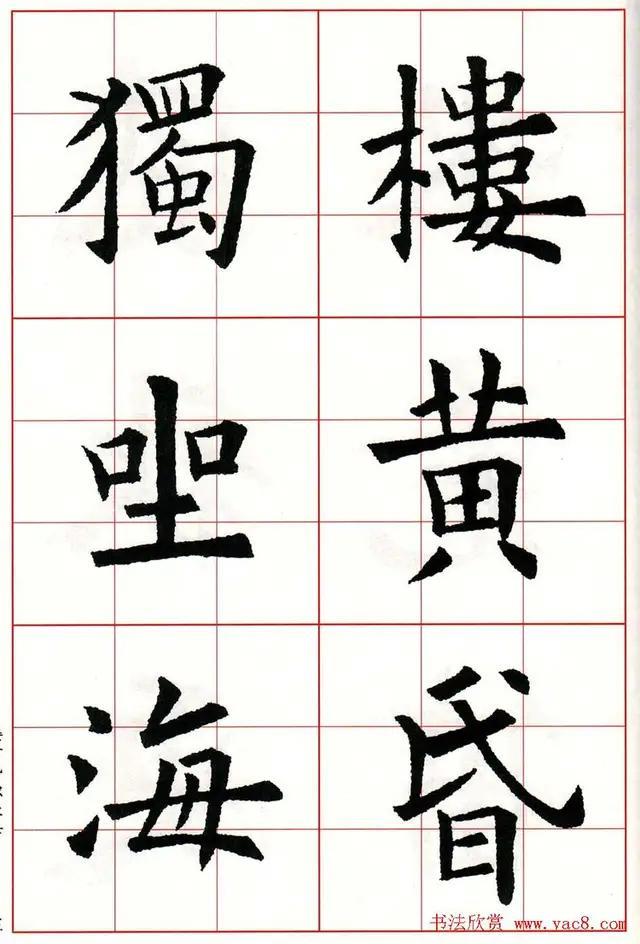 樓黄昏
獨坐海
书法欣赏 www.yac8.com